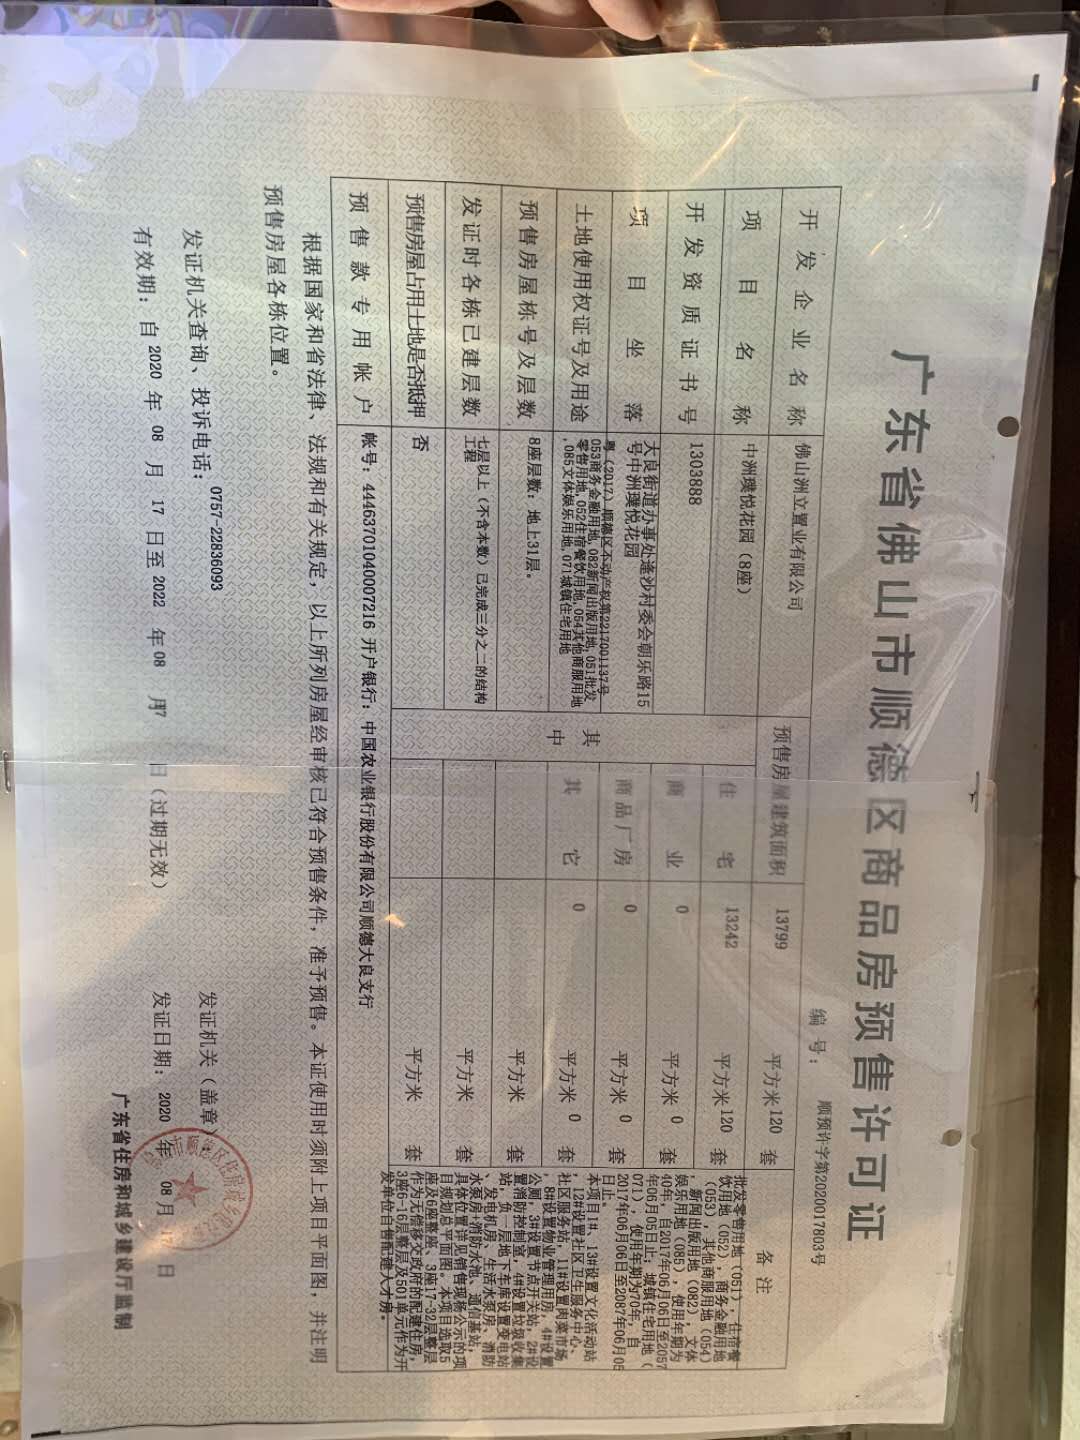 广东省佛山市顺德区商品房预售许可证
编 号: 顺预许字第2020017803号
开发企业名称 佛山洲立置业有限公司
项目名称 中洲璞悦花园（8座）
开发资质证书号 1303888
项目坐落 大良街道办事处逢沙村委会朝乐路15
号中洲璞悦花园
土地使用权证号及用途 粤（2017）顺德区不动产权第2217001137号
053商务金融用地,082新闻出版用地,051批发
零售用地,052住宿餐饮用地,054其他商服用地
,085文体娱乐用地,071城镇住宅用地
预售房屋栋号及层数 8座层数: 地上31层。
发证时各栋已建层数 七层以上（不含本数）已完成三分之二的结构
工程
预售房屋占用土地是否抵押 否
预售款专用帐户 帐号: 44463701040007216 开户银行: 中国农业银行股份有限公司顺德大良支行
预售房屋建筑面积 13799 平方米 120 套
其中
住宅 13242 平方米 120 套
商业 0 平方米 0 套
商品厂房 0 平方米 0 套
其它 0 平方米 0 套
平方米 套
平方米 套
平方米 套
备注
批发零售用地（051），住宿餐
饮用地（052），商务金融用地
（053），其他商服用地（054）
，新闻出版用地（082），文体
娱乐用地（085），使用年期为
40年，自2017年06月06日至2057
年06月05日止；城镇住宅用地（
071），使用年期为70年，自
2017年06月06日至2087年06月05
日止。
本项目1#、13#设置文化活动站
，12#设置社区卫生服务中心、
社区服务站，11#设置肉菜市场
，8#设置物业管理用房，4#设置
公厕，3#设置节点开关站，2#设
置消防控制室，4#设置垃圾收集
站，负一层地下车库设置变电站
、发电机房、生活水泵房、消防
水泵房+消防水池、通信基站，
具体位置详见销售现场公示的项
目规划总平面图。本项目选取5
座及6座整座、3座17-32层整层
作为无偿移交政府的配建住房，
3座6-16层整层及501单元作为开
发单位自售配建人才房。
根据国家和省法律、法规和有关规定，以上所列房屋经审核已符合预售条件，准予预售。本证使用时须附上项目平面图，并注明
预售房屋各栋位置。
发证机关查询、投诉电话: 0757-22836093
发证机关（盖章）:
有效期: 自 2020 年 08 月 17 日至 2022 年 08 月 17 日（过期无效）
发证日期: 2020 年 08 月 17 日
广东省住房和城乡建设厅监制